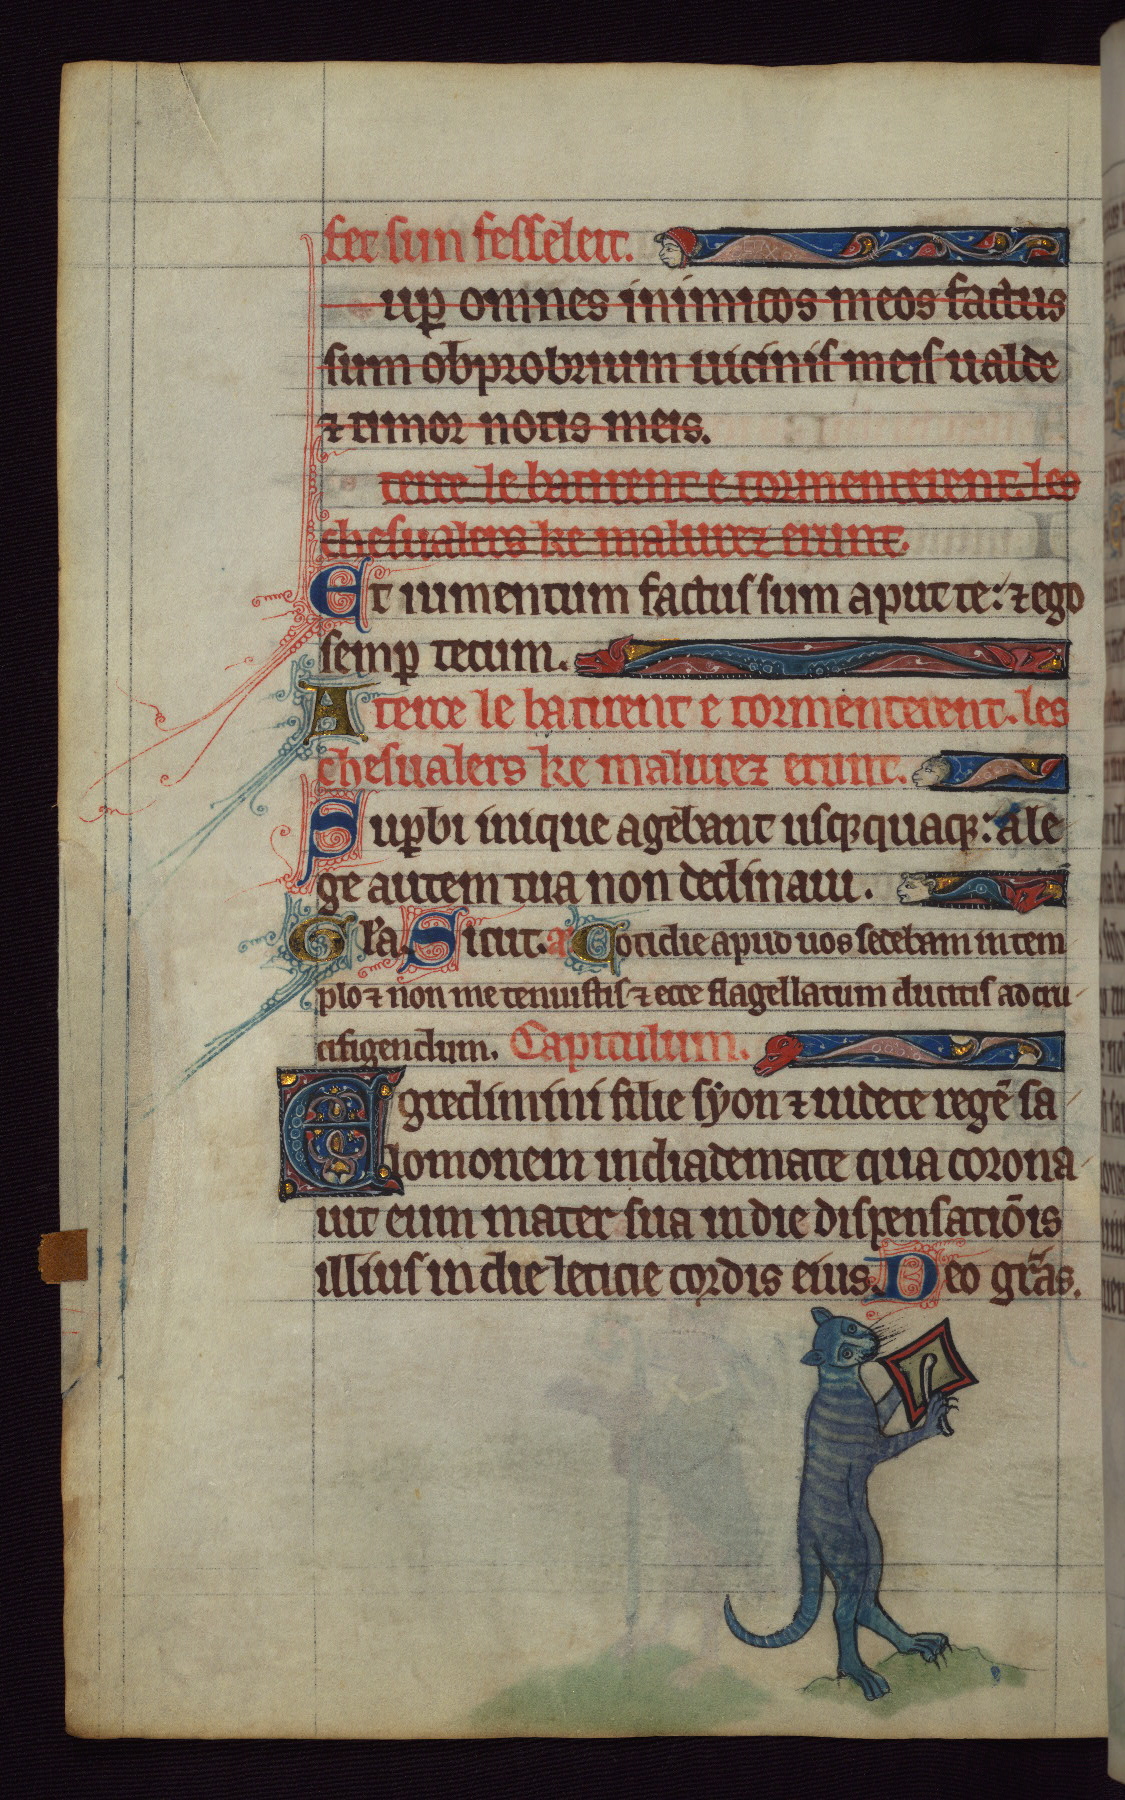 fet sun fesseleit.
up omnes inimicos meos factus
sum obprobrium uicinis meis ualde
⁊ timor notis meis.
terre le batirent e tormenterent. les
cheſualers ke malurez erunt.
Et iumentum factus sum aput te: ⁊ ego
semp̱ tecum.
A terre le batirent e tormenterent. les
cheſualers ke malurez erunt.
Sup̱bi inique agebant usqꝫquaqꝫ: a le
ge autem tua non declinaui.
Gl̃a Sicut. añ Cotidie apud uos sedebam in tem
plo ⁊ non me tenuistis ⁊ ecce flagellatum ducitis ad cru
cifigendum. Capitulum.
Egredimini filie syon ⁊ uidete regẽ sa
lomonem in diademate qua corona
uit eum mater sua in die dispensatiõis
illius in die leticie cordis eius. Deo gr̃as.